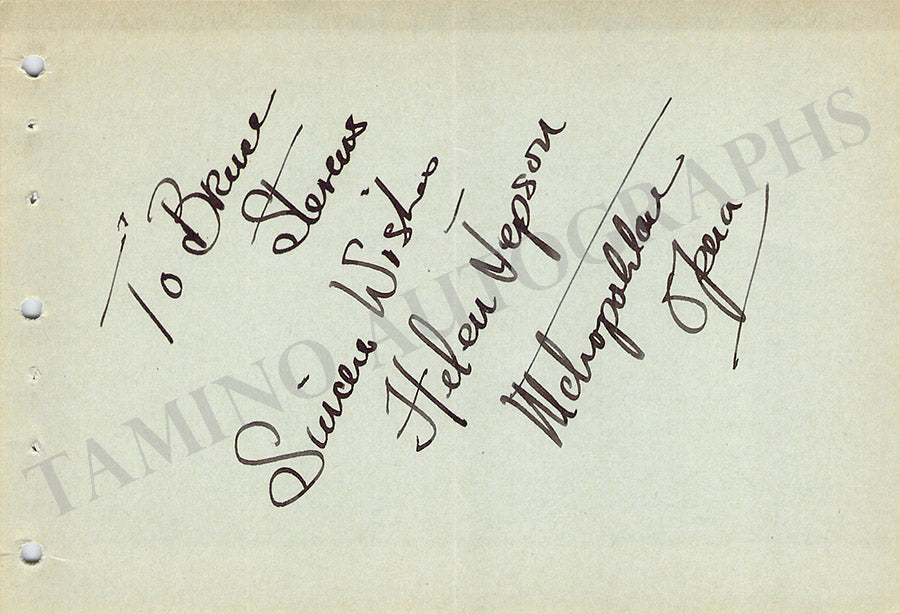 To Bruce
Stevens
Sincere Wishes
Helen Jepson
Metropolitan
Opera
TAMINO AUTOGRAPHS